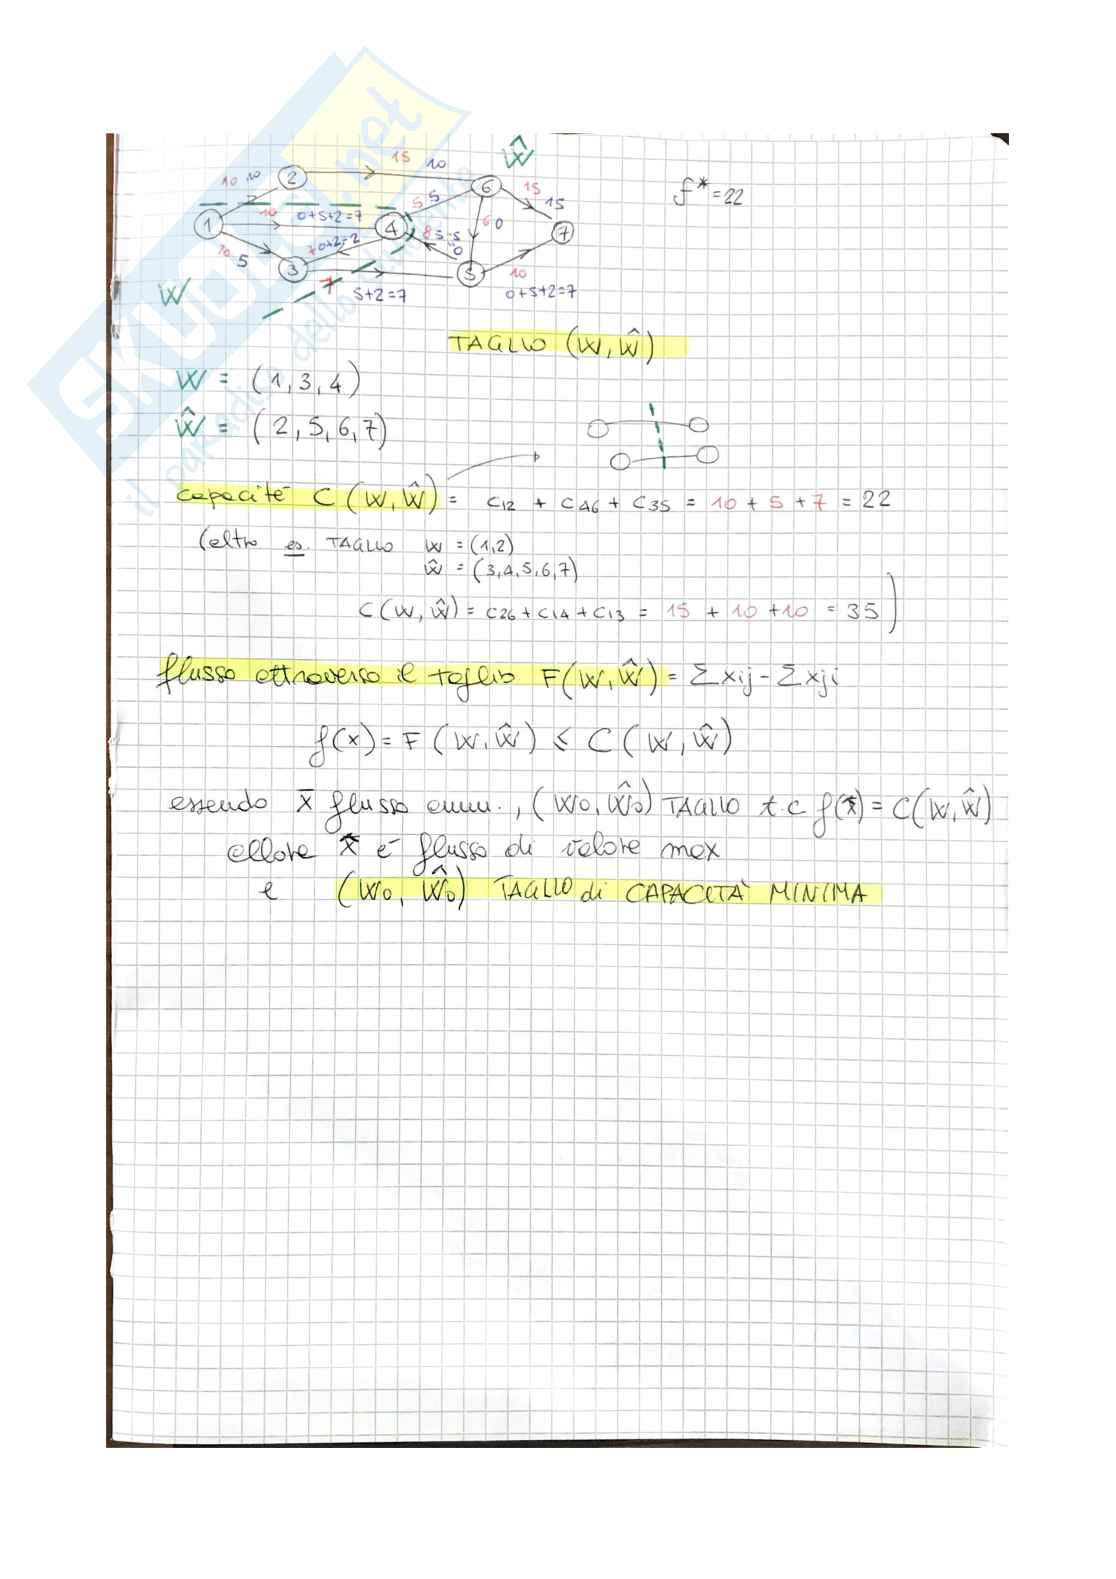 Ŵ
15 10
10 10 2 6 15
f* = 22
15
10 0+5+2=7 5 5
1 4 8 5-5 6 0 7
10 5 7 0+2=2 0
3 5 10
W 7 5+2=7 0+5+2=7
TAGLIO (W, Ŵ)
W = (1, 3, 4)
Ŵ = (2, 5, 6, 7)
capacità C (W, Ŵ) = C12 + C46 + C35 = 10 + 5 + 7 = 22
(altro es. TAGLIO W = (1,2)
Ŵ = (3,4,5,6,7)
C (W, Ŵ) = C26 + C14 + C13 = 15 + 10 + 10 = 35)
flusso attraverso il taglio F(W, Ŵ) = Σ xij - Σ xji
f(x) = F (W, Ŵ) ≤ C (W, Ŵ)
essendo x̄ flusso amm., (W0, Ŵ0) TAGLIO t.c f(x̄) = C(W, Ŵ)
allora x̄ è flusso di valore max
e (W0, Ŵ0) TAGLIO di CAPACITÀ MINIMA
SKUOLA.net
il paradiso dello